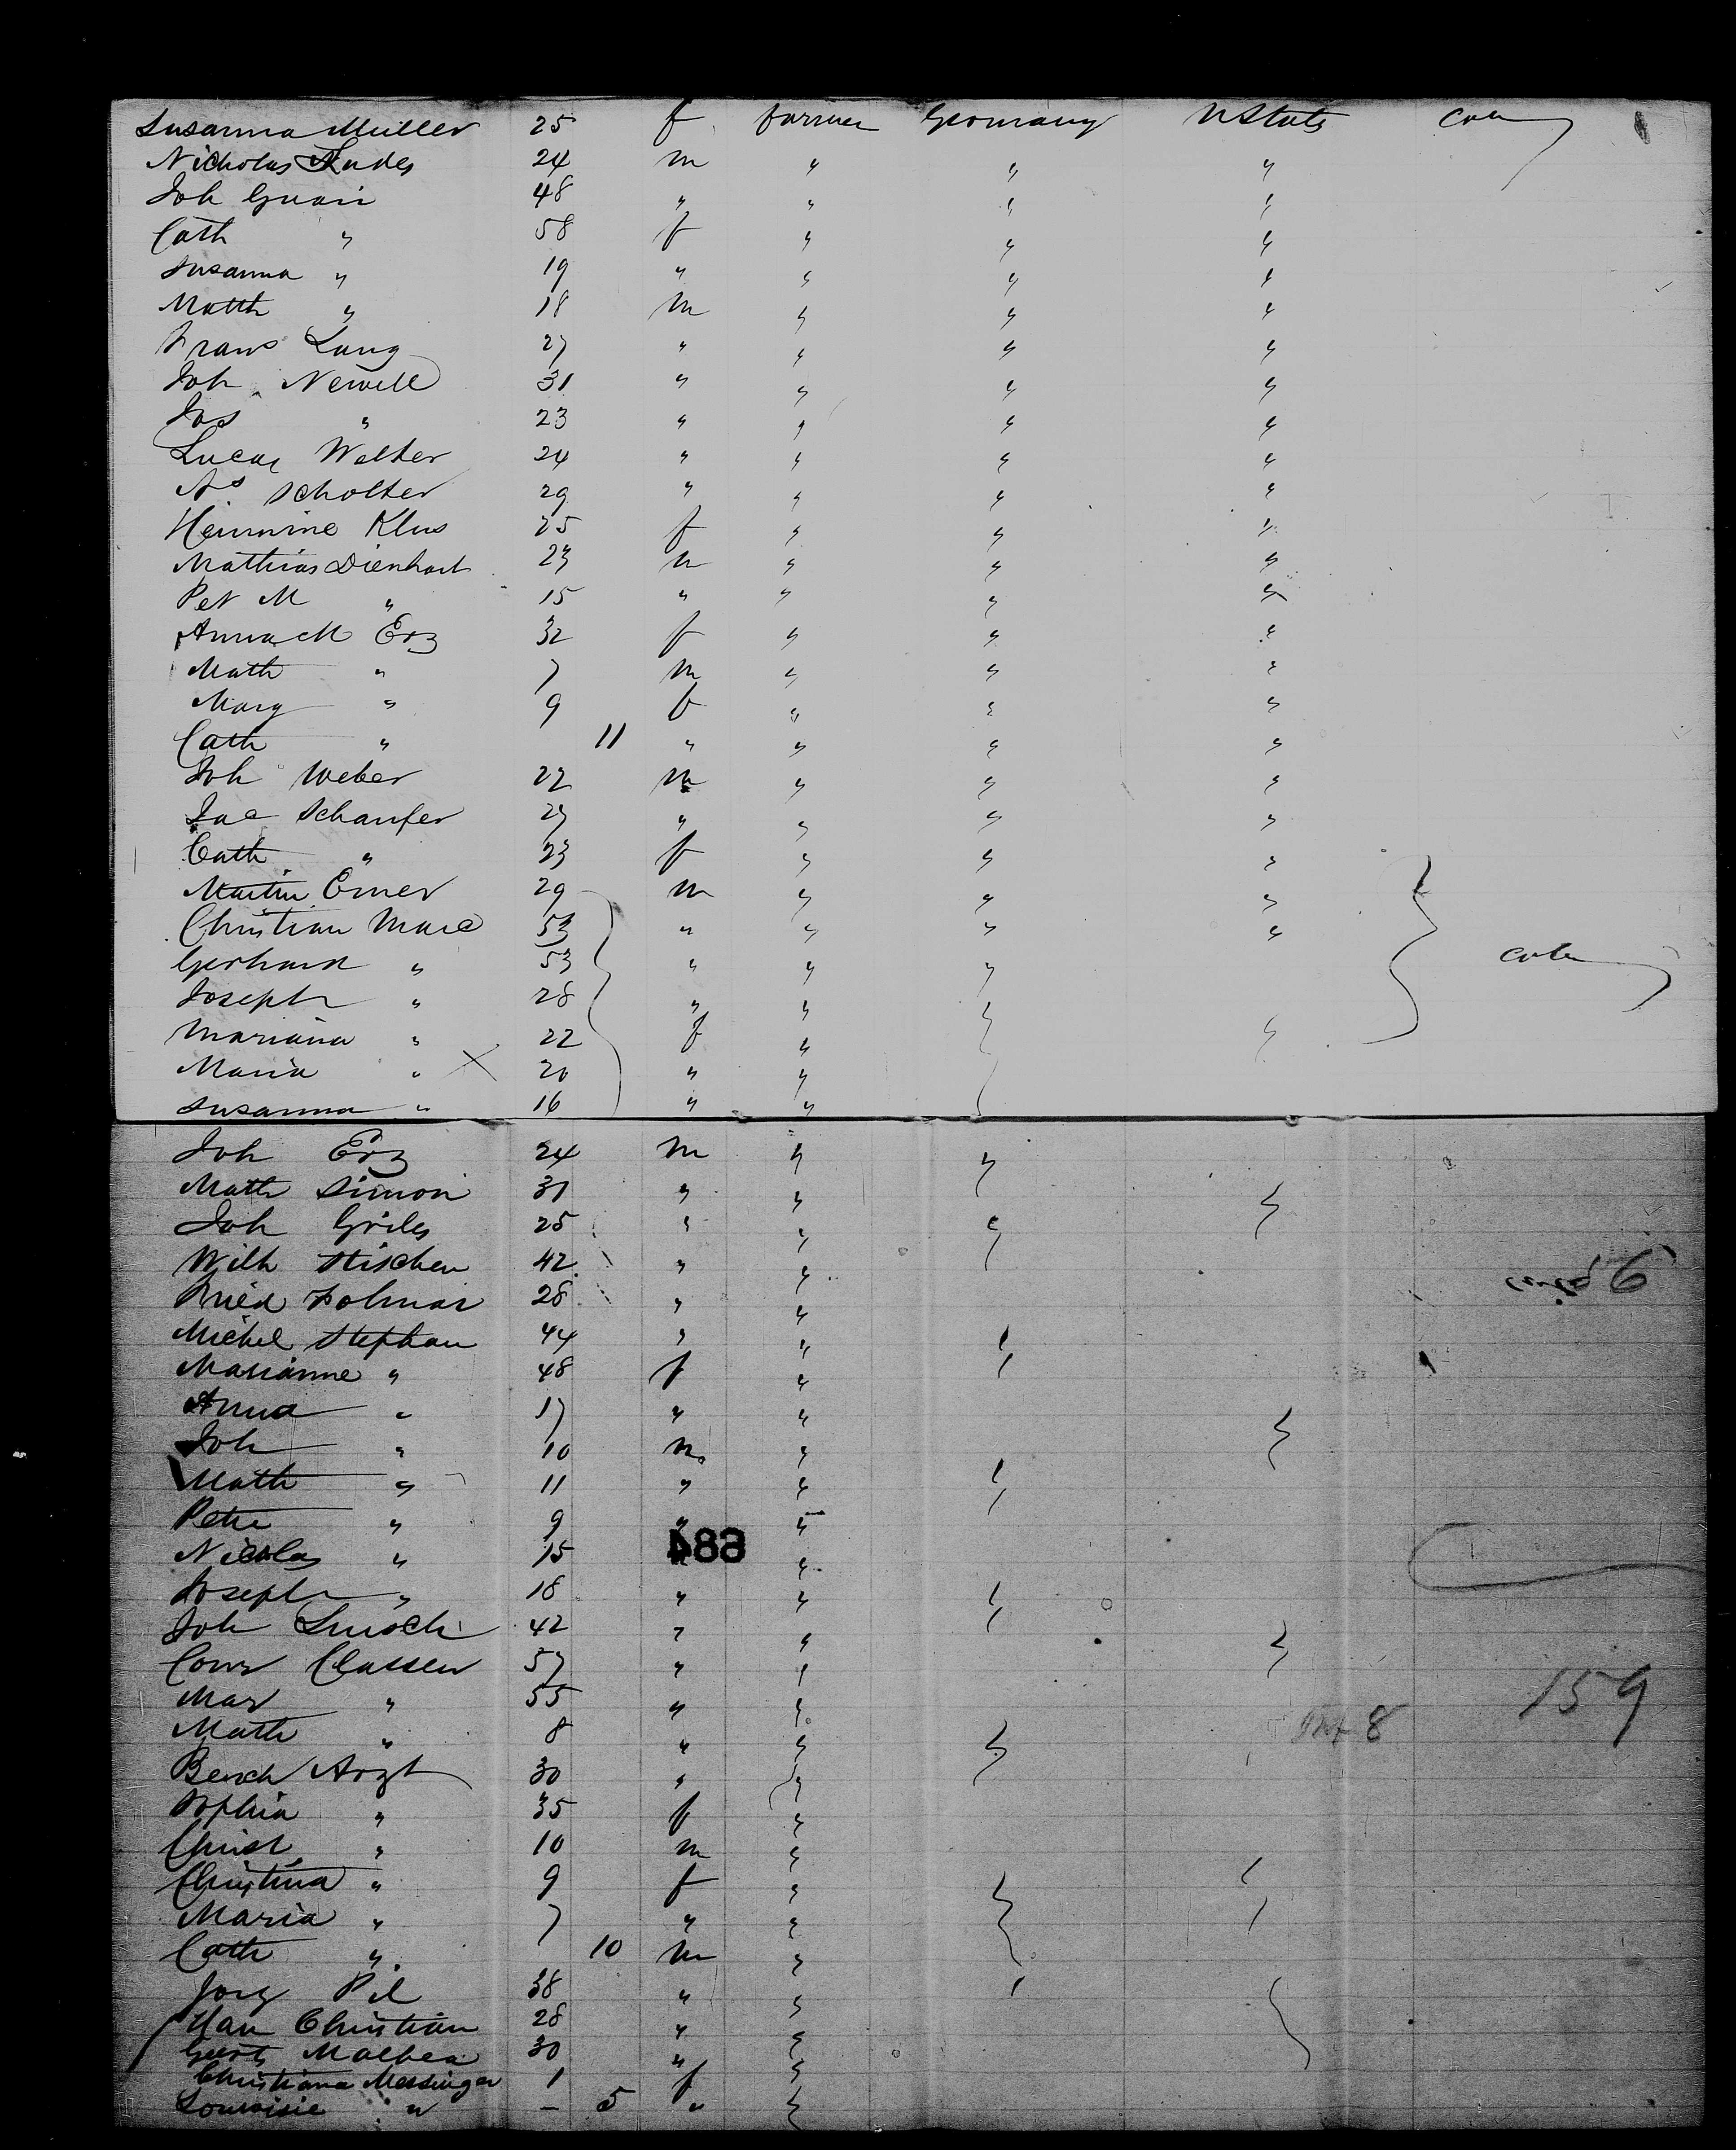 Susanna Müller 25 f farmer Germany UStats
Nicholas 24 m " " "
Joh 48 " " " "
Cath " 58 f " " "
Susanna " 19 " " " "
Matth " 18 m " " "
Frans Lang 27 " " " "
Joh Newell 31 " " " "
Jos " 23 " " " "
Lucas Welter 24 " " " "
Ns Scholter 29 " " " "
Klus 25 f " " "
Mathias Dienhart 23 m " " "
Pet M " 15 " " " "
Anna M Erz 32 f " " "
Math " 7 m " " "
Marg " 9 f " " "
Cath " 11 " " " "
Joh Weber 22 m " " "
Jac Schaufer 27 " " " "
Cath " 23 f " " "
Martin Emer 29 m " " "
Christian Marc 53 " " " "
Gerhard " 53 " " "
Joseph " 28 " "
Mariana " 22 f "
Maria " 20 " "
Susanna " 16 " "
Joh Erz 24 m " "
Math Simon 31 " "
Joh 25 " " "
Wilh 42 " "
Fried Folmar 28 " "
Michel Stephan 44 " "
Marianne " 48 f "
Anna " 17 " "
Joh " 10 m "
Math " 11 " "
Peter " 9 " "
684
Nicolas " 15 " "
Joseph " 18 " "
Joh 42 " "
Classen 57 " "
Mar " 55 " "
159
Math " 8 " "
8
Arzt 30 " "
Sophia " 35 f "
Christ " 10 m "
Christina " 9 f "
Maria " 7 " "
Cath " 10 m "
Jorg Pil 38 " "
Christian 28 " "
30 " "
Christiana Messinger 1 f "
Louwisie " – 5 " "